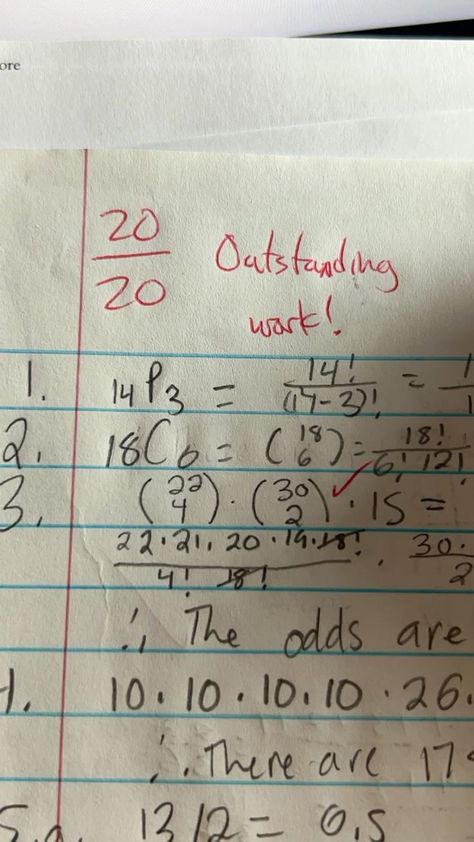 ore
20/20 Outstanding
work!
1. 14P3 = 14!/(14-3)! = 1
2. 18C6 = (18 6) = 18!/6! 12!
3. (22 4) · (30 2) · 15 =
22·21·20·19·18!/4! 18! · 30·/2
∴ The odds are
10·10·10·10·26·
∴ There are 17
5.a. 13/2 = 0.5